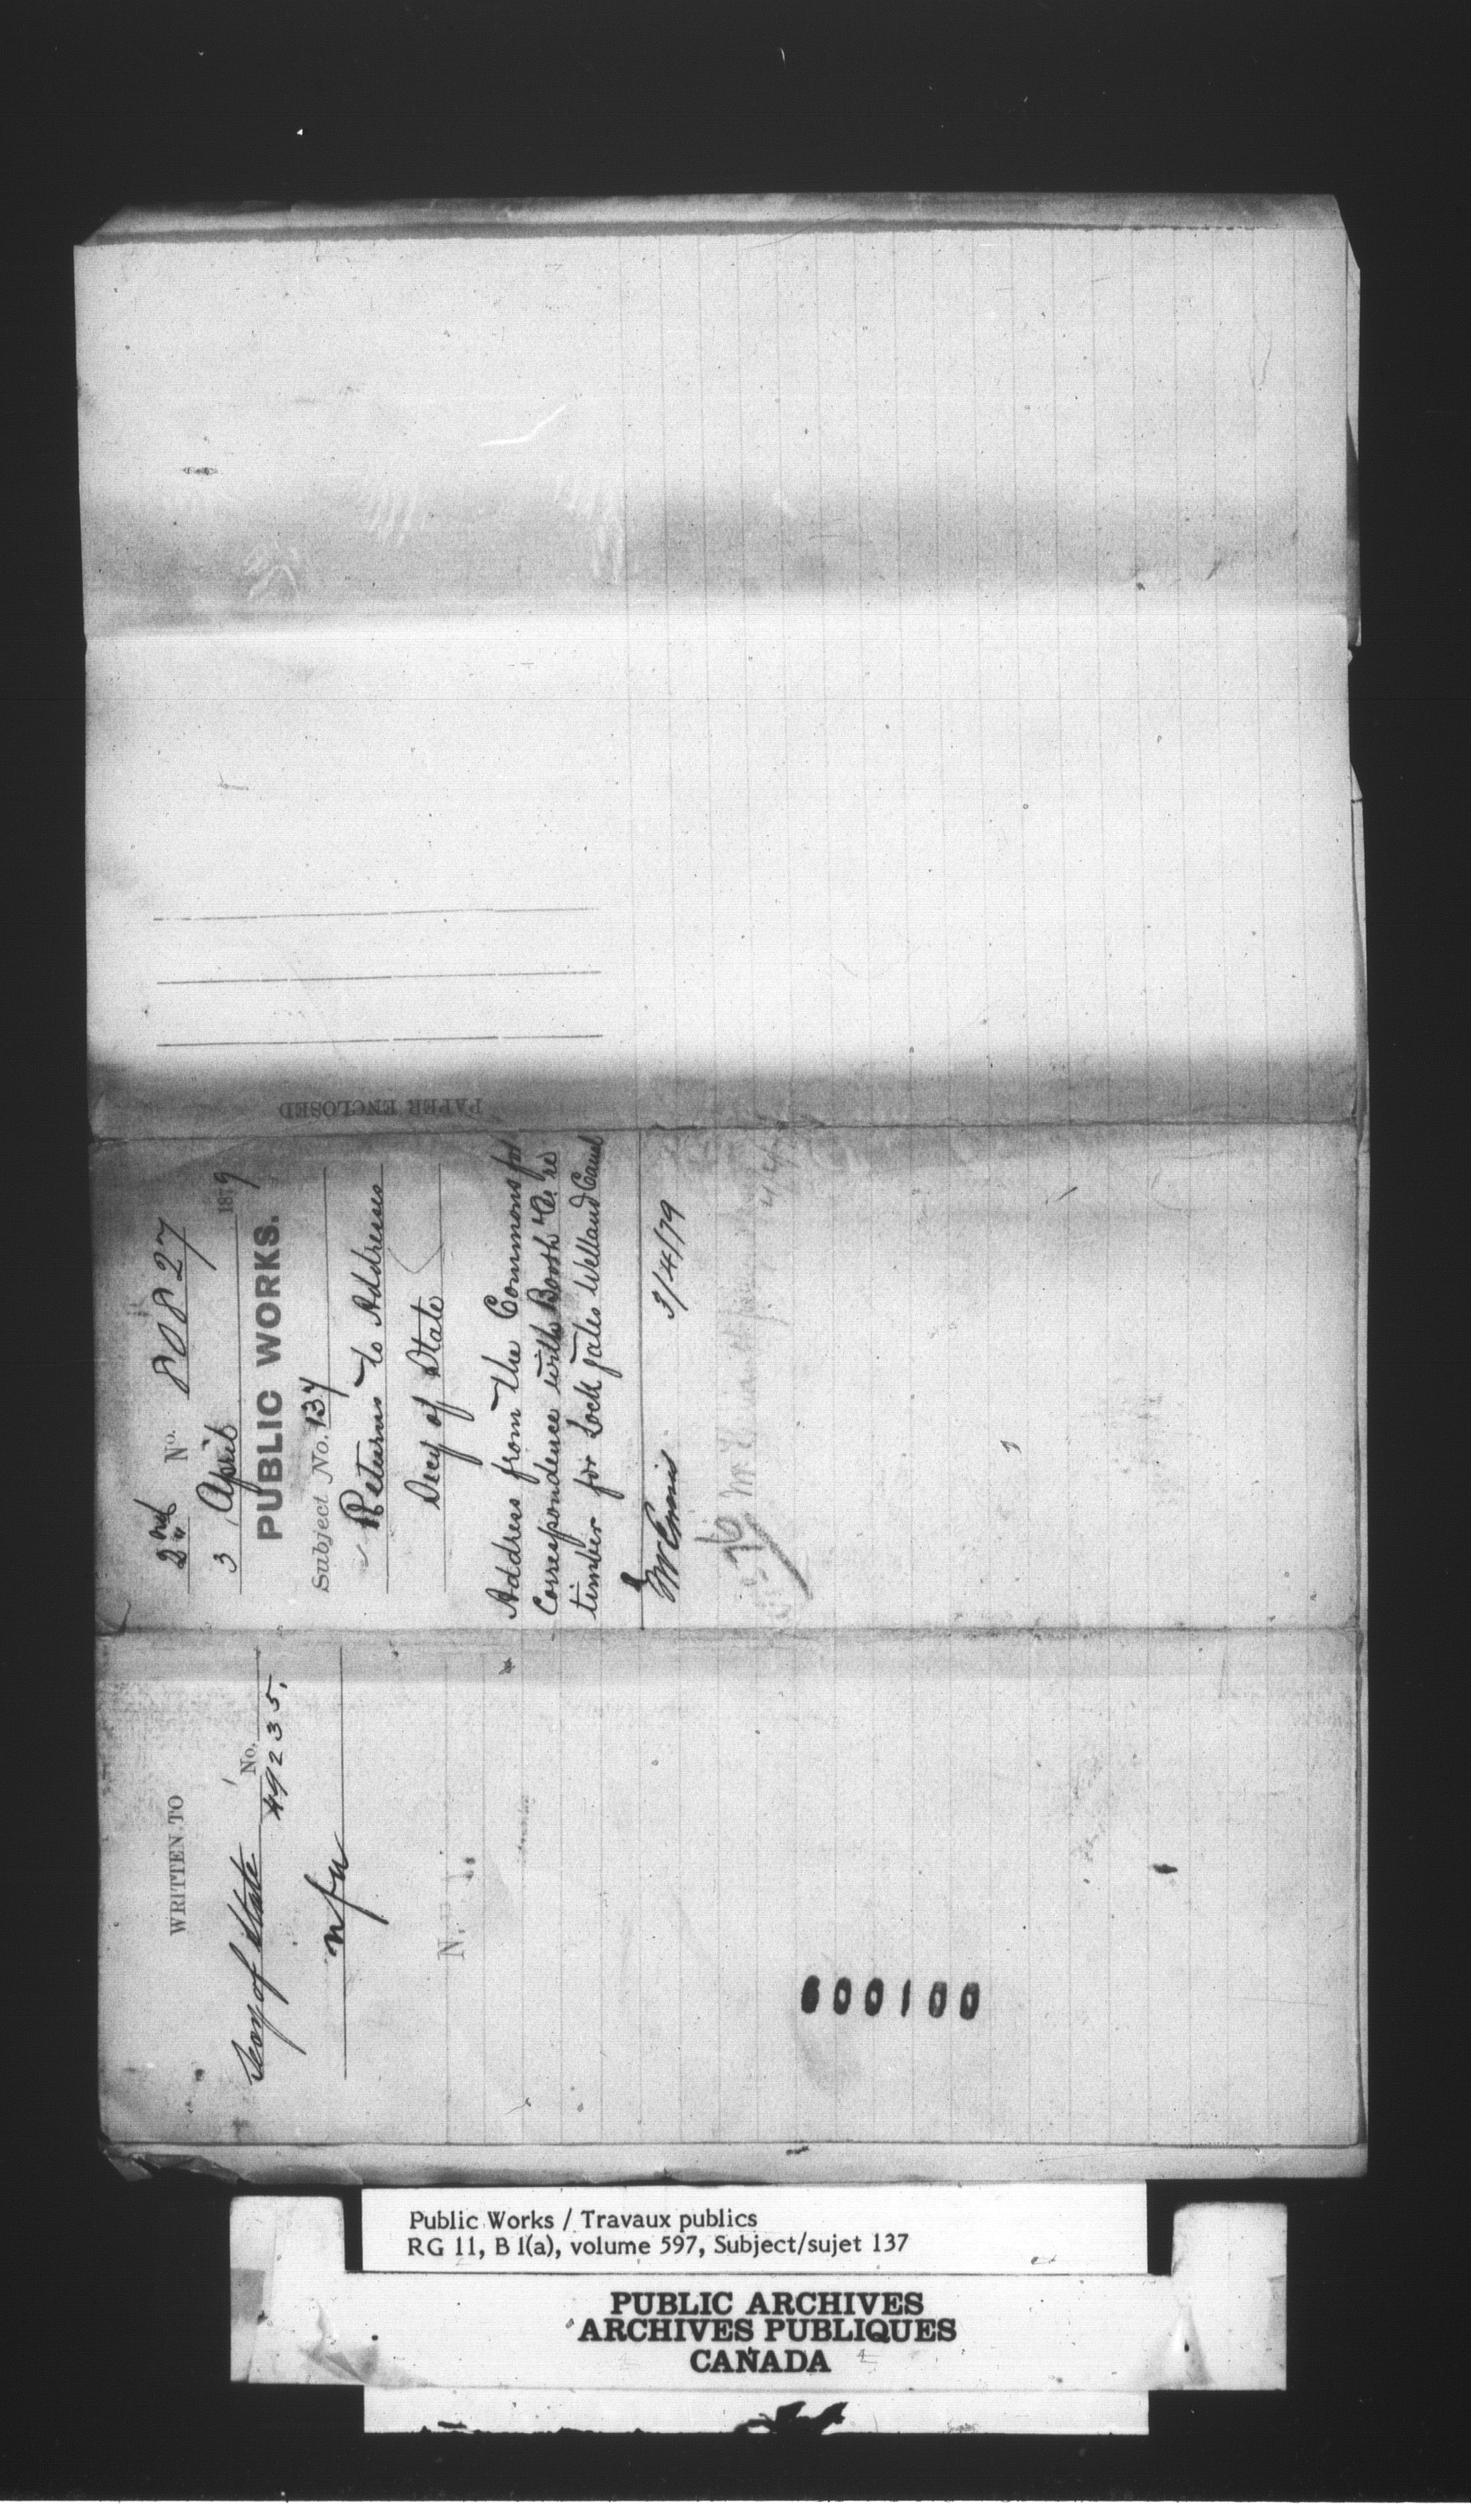 WRITTEN TO
Secy of State
No.
49235.
nfw
2nd No. 80827
3 April 1879
PUBLIC WORKS.
Subject No. 137
Returns to Addresses
Secy of State
Address from the Commons for
Correspondence with Booth & Co re
timber for Lock Gates Welland Canal
Mr Ennis 3/4/79
To Mr
PAPER ENCLOSED
600100
Public Works / Travaux publics
RG 11, B 1(a), volume 597, Subject/sujet 137
PUBLIC ARCHIVES
ARCHIVES PUBLIQUES
CANADA